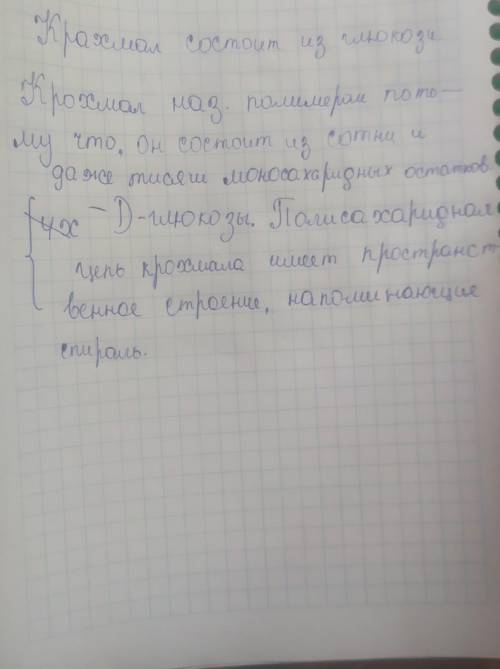 Крахмал состоит из глюкози
Крохмал наз. полимером пото-
му что, он состоит из сотни и
даже тисячи моносахаридных остатков
- D-глюкозы. Полисахариднал
цепь крохмала имеет пространст
венное строение, напоминающие
спираль.